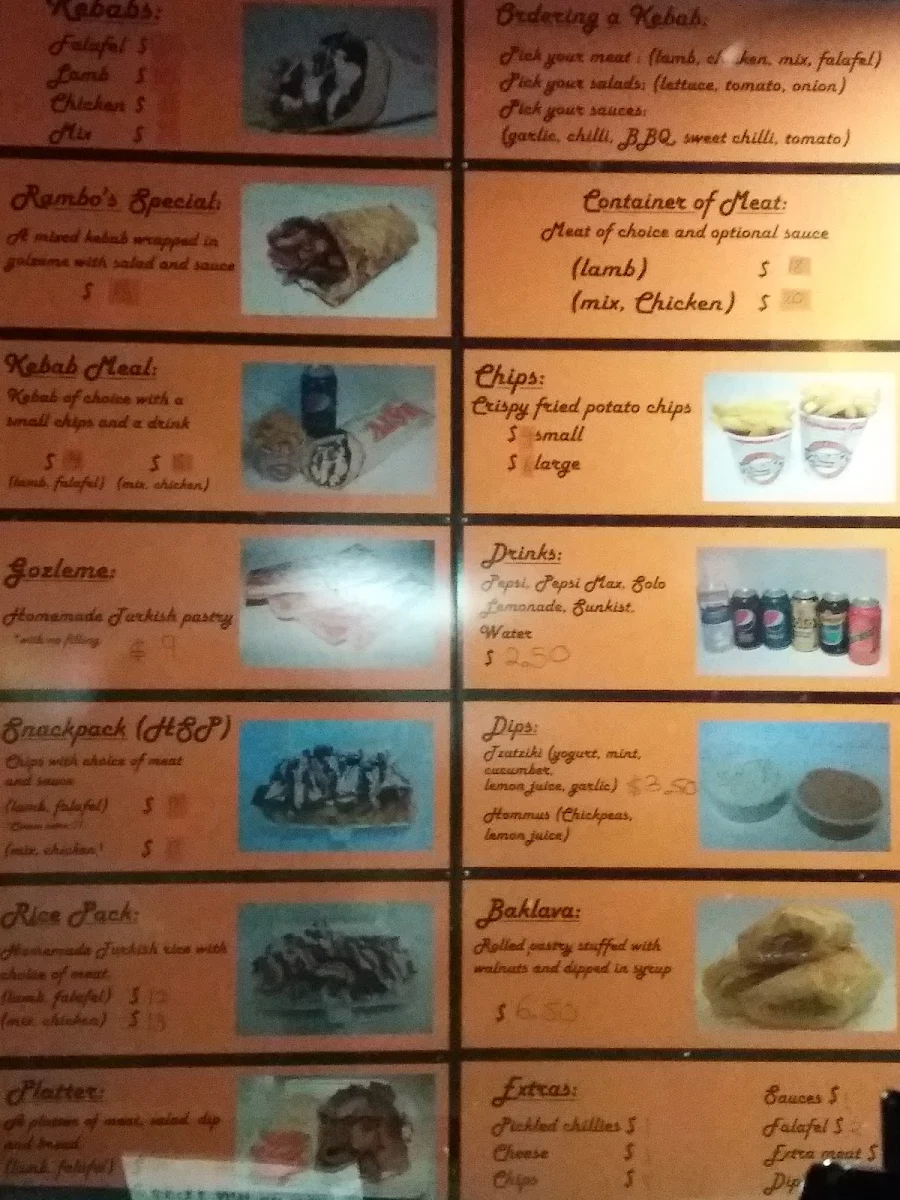 Kebabs:
Falafel $
Lamb $
Chicken $
Mix $
Rambo's Special:
A mixed kebab wrapped in
golzeme with salad and sauce
$
Kebab Meal:
Kebab of choice with a
small chips and a drink
$ $
(lamb, falafel) (mix, chicken)
Gozleme:
Homemade Turkish pastry
*with no filling
$ 9
Snackpack (HSP)
Chips with choice of meat
and sauce
(lamb, falafel) $
(mix, chicken) $
Rice Pack:
Homemade Turkish rice with
choice of meat
(lamb, falafel) $ 12
(mix, chicken) $ 13
Platter:
A platter of meat, salad, dip
and bread
(lamb, falafel)
Ordering a Kebab:
Pick your meat : (lamb, chicken, mix, falafel)
Pick your salads: (lettuce, tomato, onion)
Pick your sauces:
(garlic, chilli, BBQ, sweet chilli, tomato)
Container of Meat:
Meat of choice and optional sauce
(lamb) $
(mix, Chicken) $ 20
Chips:
Crispy fried potato chips
$ small
$ large
Drinks:
Pepsi, Pepsi Max, Solo
Lemonade, Sunkist,
Water
$ 2.50
Dips:
Tzatziki (yogurt, mint,
cucumber,
lemon juice, garlic) $3.50
Hommus (Chickpeas,
lemon juice)
Baklava:
Rolled pastry stuffed with
walnuts and dipped in syrup
$ 6.50
Extras:
Pickled chillies $
Cheese $
Chips $
Sauces $
Falafel $
Extra meat $
Dip